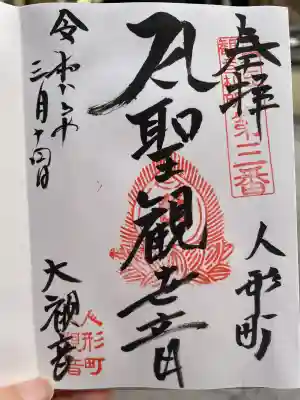 奉拝
第三番
人形町
聖観世音
大観音
人形町
令和六年
三月十四日